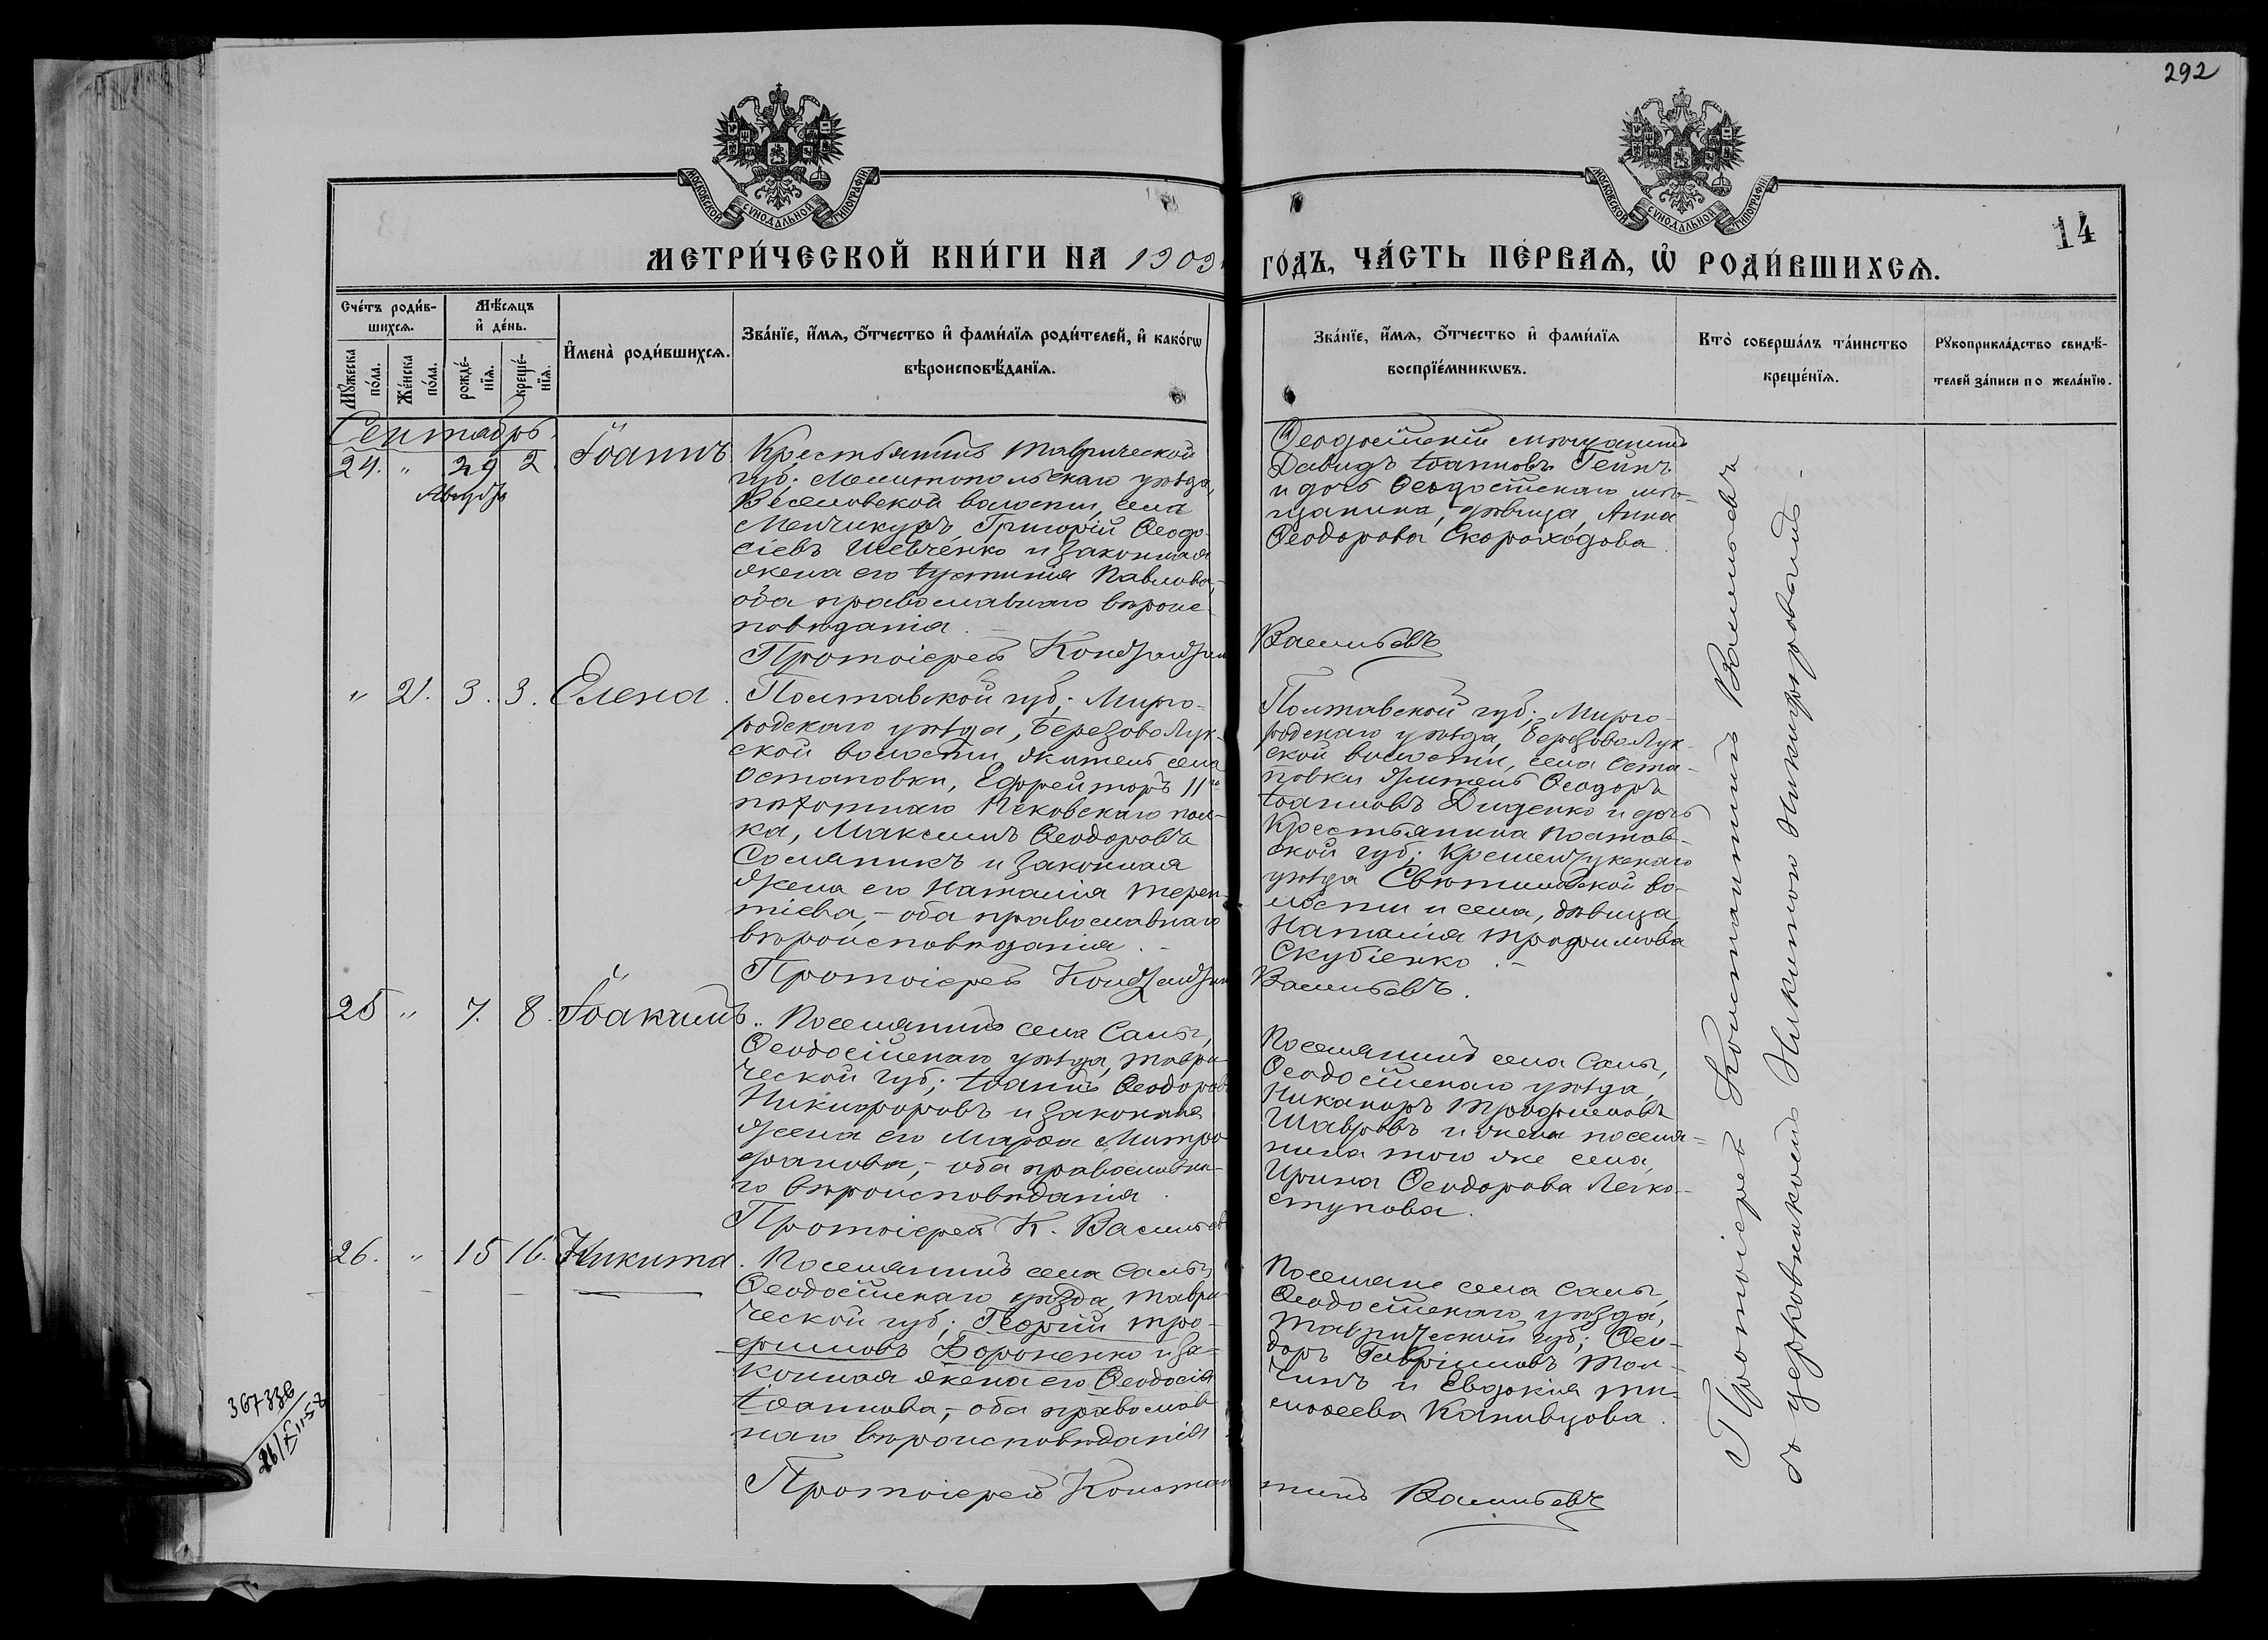 292
МОСКОВСКОЙ СѴНОДАЛЬНОЙ ТИПОГРАФІИ
МОСКОВСКОЙ СѴНОДАЛЬНОЙ ТИПОГРАФІИ
14
МЕТРИ́ЧЕСКОЙ КНИ́ГИ НА 1909
ГО́ДЪ, ЧА́СТЬ ПЕ́РВАѦ, Ѡ҆ РОДИ́ВШИХСѦ.
Сче́тъ роди́в-
шихсѧ.
Мѣ́сѧцъ
и҆ де́нь.
Мꙋ́жеска
по́ла.
Же́нска
по́ла.
рожде́-
нїѧ.
креще́-
нїѧ.
И҆мена̀ роди́вшихсѧ.
Зва́нїе, и҆́мѧ, ѻ҆́тчество и҆ фами́лїѧ роди́телей, и҆ како́гѡ
вѣроисповѣ́данїѧ.
Зва́нїе, и҆́мѧ, ѻ҆́тчество и҆ фами́лїѧ
воспрїе́мникѡвъ.
Кто̀ соверша́лъ та́инство
креще́нїѧ.
Рꙋкоприкла́дство свидѣ́-
телей за́писи по жела́нїю.
Сентябрь
24. " 29 2. Іоаннъ
Августа
Крестьянинъ Таврической
губ; Мелитопольскаго уѣзда,
Веселовской волости, села
Менчикуръ, Григорій Ѳеодо-
сіевъ Шевченко и законная
жена его Іустинія Павлова,
оба православнаго вѣроис-
повѣданія.
Протоіерей Константин
Ѳеодосійскій мѣщанинъ
Давидъ Іоанновъ Гейнъ
и дочь Ѳеодосійскаго мѣ-
щанина, дѣвица, Анна
Ѳеодорова Скороходова.
Васильевъ
" 21. 3. 3. Елена.
Полтавской губ; Мирго-
родскаго уѣзда, БерезовоЛук-
ской волости житель села
Остаповки, Ефрейторъ 11го
пѣхотнаго Псковскаго пол-
ка, Максимъ Ѳеодоровъ
Сомяникъ и законная
жена его Наталія Терен-
тіева, - оба православнаго
вѣроисповѣданія. -
Протоіерей Константин
Полтавской губ; Мирго-
родскаго уѣзда, БерезовоЛук-
ской волости, села Оста-
повки житель Ѳеодоръ
Іоанновъ Диденко и дочь
Крестьянина Полтав-
ской губ; Кременчукскаго
уѣзда во-
лости и села, дѣвица,
Наталія Трофимова
Скубіенко. -
Васильевъ.
25 " 7. 8. Іоакимъ.
Поселянинъ села Салы,
Ѳеодосійскаго уѣзда, Таври-
ческой губ; Іоаннъ Ѳеодоров
Никифоровъ и законная
жена его Марѳа Митро-
фанова, - оба православна-
го вѣроисповѣданія.
Протоіерей К. Васильев
Поселянинъ села Салы,
Ѳеодосійскаго уѣзда,
Никаноръ Трофимовъ
Шавровъ и жена поселя-
нина того же села,
Ирина Ѳеодорова Легко-
ступова.
26. " 15 16. Никита.
Поселянинъ села Салы,
Ѳеодосійскаго уѣзда, Таври-
ческой губ; Георгій Тро-
фимовъ Вороненко и за-
конная жена его Ѳеодосія
Іоаннова, - оба православ-
наго вѣроисповѣданія
Протоіерей Констан
Поселяне села Салы,
Ѳеодосійскаго уѣзда,
Таврической губ; Ѳео-
доръ Гавріиловъ Тол-
чинъ и Евдокія Ти-
моѳеева Канивцова.
тинъ Васильевъ
Протоіерей Константинъ Васильевъ
съ церковникомъ Никитою Никифоровымъ.
367336